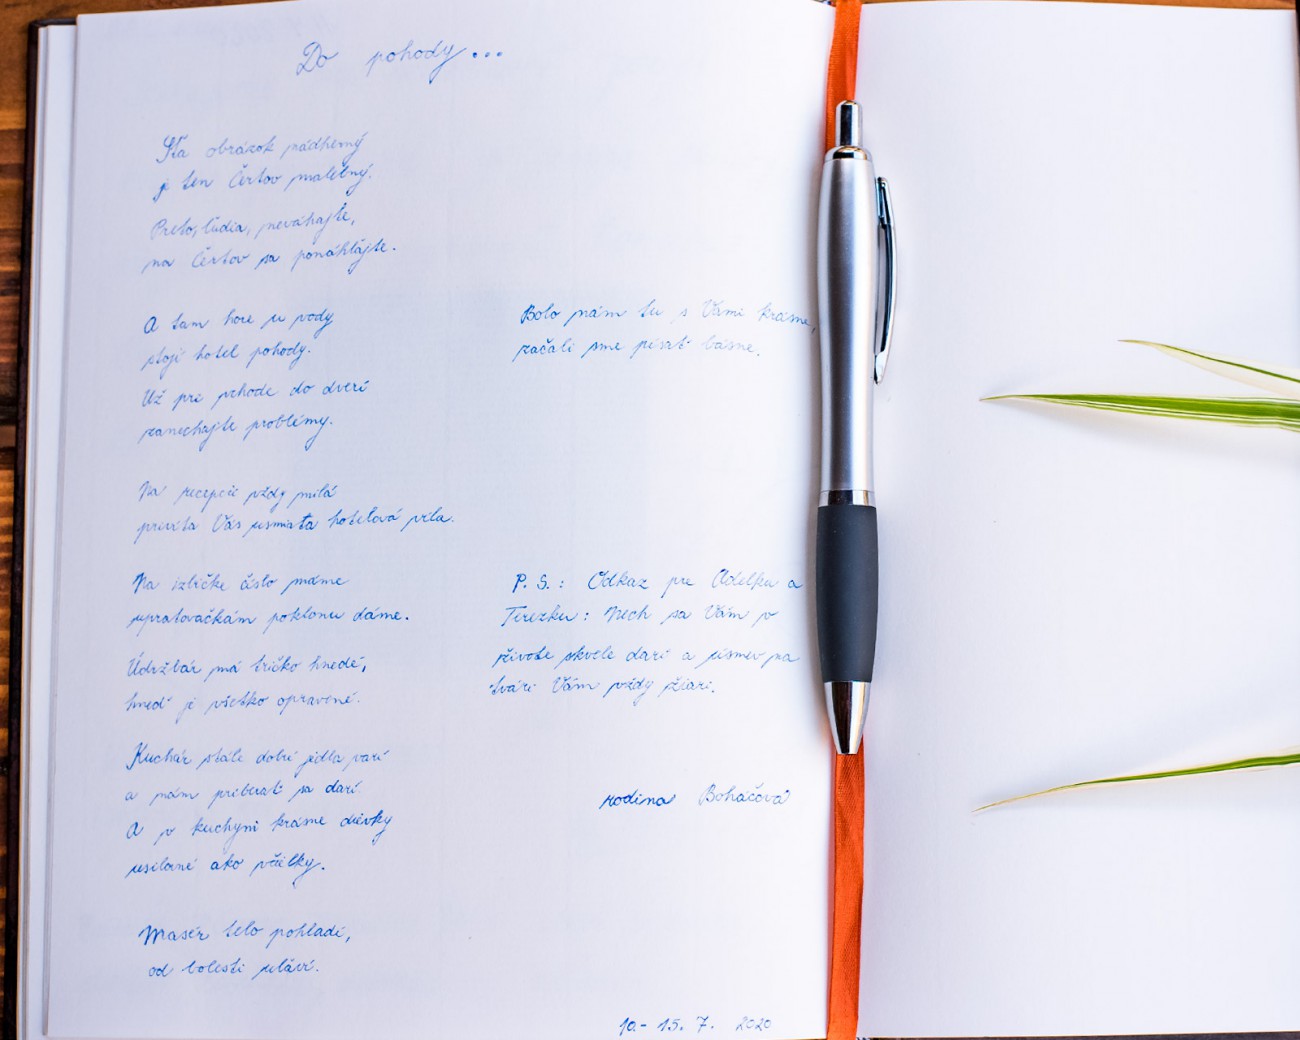 Do pohody...
Sťa obrázok nádherný
je ten Čertov malebný.
Preto, ľudia, neváhajte,
na Čertov sa ponáhľajte.
A tam hore pri vody
stojí hotel pohody.
Už pre vchode do dverí
zanechajte problémy.
Na recepcii vždy milá
privíta Vás usmiata hotelová víla.
Na izbičke čisto máme
upratovačkám poklonu dáme.
Údržbár má tričko hnedé,
hneď je všetko opravené.
Kuchár stále dobré jedlá varí
a nám priberať sa darí
A v kuchyni krásne dievky
usilovné ako včielky.
Masér telo pohladí,
od bolesti uľaví.
Bolo nám tu s Vami krásne,
začali sme písať básne.
P. S.: Odkaz pre Adelku a
Terezku: Nech sa Vám v
živote skvele darí a úsmev na
tvári Vám vždy žiari.
rodina Boháčová
10.- 15. 7. 2020